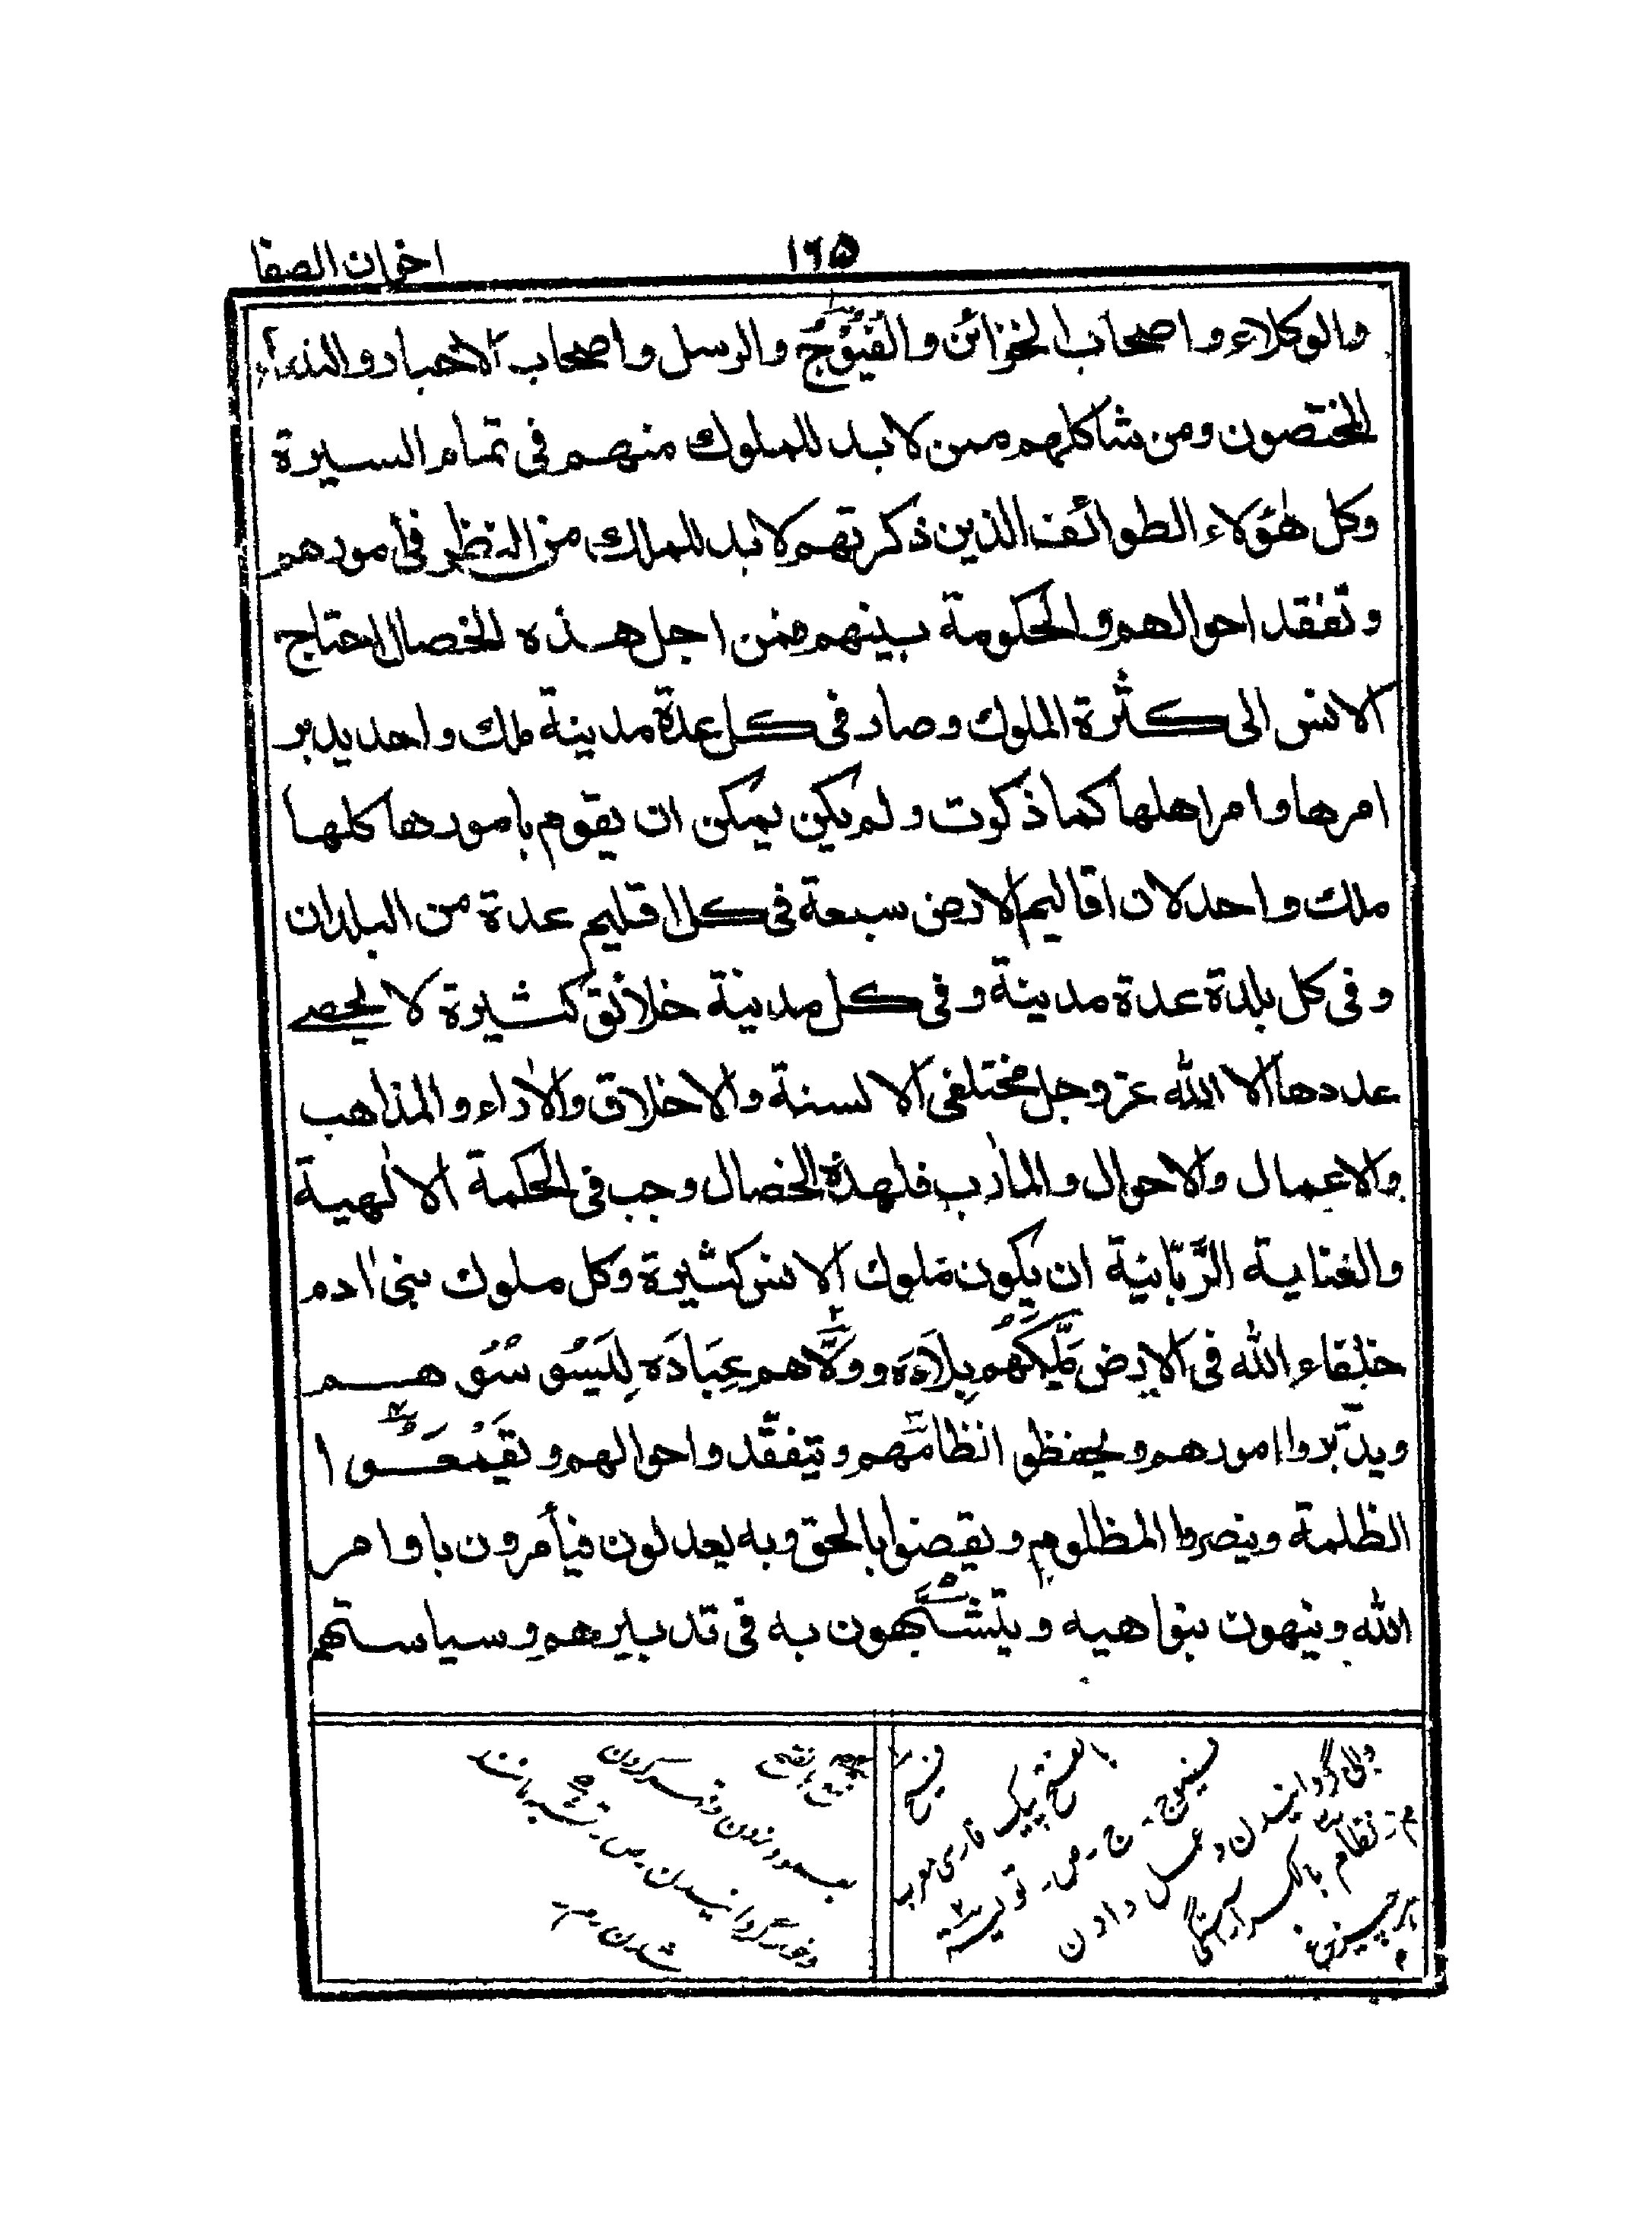 اخوان الصفا
١٦٥
والوكلاء واصحاب الخزائن والفُيُوْجُ والرسل واصحاب الاخبار والندماء
المختصون ومن شاكلهم ممن لا بد للملوك منهم في تمام السيرة
وكل هٰؤلاء الطوائف الذين ذكرتهم لا بد للملك من النظر في أمورهم
وتفقد احوالهم والحكومة بينهم فمن اجل هذه الخصال احتاج
الانس الى كثرة الملوك وصار في كل عدة مدينة ملك واحد يدبر
امرها وامر اهلها كما ذكرت ولم يكن يمكن ان يقوم بامورها كلها
ملك واحد لان اقاليم الارض سبعة في كل اقليم عدة من البلدان
وفي كل بلدة عدة مدينة وفي كل مدينة خلائق كثيرة لا يحصے
عددها الا الله عز وجل مختلفي الالسنة والاخلاق والاٰراء والمذاهب
والاعمال والاحوال والماٰرب فلهذه الخصال وجب في الحكمة الالٰهية
والعناية الرَّبّانية ان يكون ملوك الانس كثيرة وكل ملوك بني اٰدم
خلفاء الله في الارض مَلَّكَهُمْ بِلَادَه وولَّاهم عِبَادَه لِيَسُوسُوهم
ويدبّروا امورهم ويحفظوا نظامَهم ويتفقّدوا احوالهم ويَقْمَعُوا
الظلمة وينصروا المظلوم ويقضوا بالحق وبه يعدلون فيأمرون باوامر
الله وينهون بنواهيه ويتشبّهون به في تدبيرهم وسياستهم
فيج
بالفتح پيک فارسی معرب
فيوج ـ ج ـ ص ـ تولية
والی گردانیدن و عمل دادن
م ـ نظام بالکسر آراستگی
هر چیز
قمع بالفتح
بعمود زدن و قهر کردن
و خوار گردانیدن ـ ص ـ تشبه مانند
شدن ـ م ـ